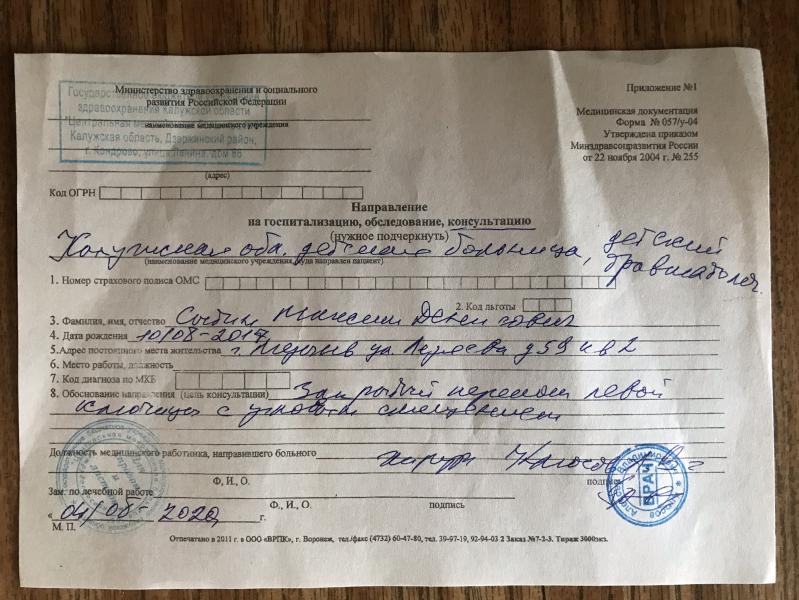 Министерство здравоохранения и социального
развития Российской Федерации
Государственное
здравоохранения Калужской области
"Центральная
Калужская область, Дзержинский район,
г. Кондрово, улица Ленина, дом 86
наименование медицинского учреждения
(адрес)
Код ОГРН
Приложение №1
Медицинская документация
Форма № 057/у-04
Утверждена приказом
Минздравсоцразвития России
от 22 ноября 2004 г. № 255
Направление
на госпитализацию, обследование, консультацию
(нужное подчеркнуть)
Калужская обл. детская больница, детский
травматолог.
(наименование медицинского учреждения, куда направлен пациент)
1. Номер страхового полиса ОМС
2. Код льготы
3. Фамилия, имя, отчество Максим Денисович
4. Дата рождения 10/08-2017
5.Адрес постоянного места жительства г. ул. д 59 кв 2
6. Место работы, должность
7. Код диагноза по МКБ
8. Обоснование направления (цель консультации) Закрытый перелом левой
ключицы с угловым смещением
Должность медицинского работника, направившего больного хирург
Ф, И., О. подпись
Зам. по лечебной работе
Ф., И., О. подпись
"04/08-2020 г.
М. П.
ВРАЧ
Владимирович
Отпечатано в 2011 г. в ООО «ВРПК», г. Воронеж, тел./факс (4732) 60-47-80, тел. 39-97-19, 92-94-03 2 Заказ №7-2-3. Тираж 3000экз.